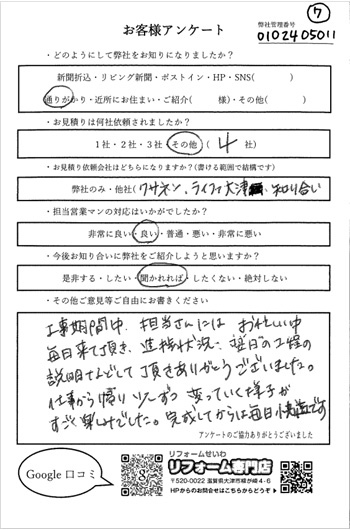 ⑦
お客様アンケート
弊社管理番号
0102405011
・どのようにして弊社をお知りになりましたか？
新聞折込・リビング新聞・ポストイン・HP・SNS(　　　)
通りがかり・近所にお住まい・ご紹介(　　　様)・その他(　　　)
・お見積りは何社依頼されましたか？
1社・2社・3社・その他 ( 4 社)
・お見積り依頼会社はどちらになりますか？(書ける範囲で結構です)
弊社のみ・他社(ワサネン、ライファ大津 、知り合い
・担当営業マンの対応はいかがでしたか？
非常に良い・良い・普通・悪い・非常に悪い
・今後お知り合いに弊社をご紹介しようと思いますか？
是非する・したい・聞かれれば・したくない・絶対しない
・その他ご意見等ご自由にお書きください
工事期間中、担当さんには お忙しい中
毎日来て頂き、進捗状況、翌日の工程の
説明などして頂きありがとうございました。
仕事から帰り 少しずつ 変っていく様子が
すごく楽しみでした。完成してからは毎日快適です
アンケートのご協力ありがとうございました
Google 口コミ
リフォームせいわ
リフォーム専門店
〒520-0022 滋賀県大津市柳が崎4-6
HPからのお問合せはこちらからどうぞ